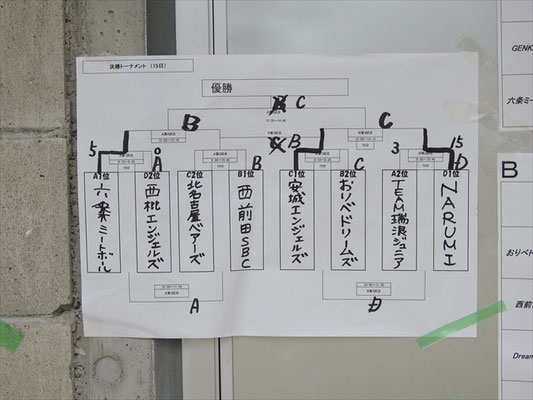 決勝トーナメント (15日)
優勝
C
B
C
B
5
0
A
B
C
3
15
D
A1位
D2位
C2位
B1位
C1位
B2位
A2位
D1位
六条ミートボール
西枇エンジェルズ
北名古屋ベアーズ
西前田SBC
安城エンジェルズ
おりべドリームズ
TEAM瑞浪ジュニア
NARUMI
A
D
GENK
六条ミー
B
おりべド
西前
Dream